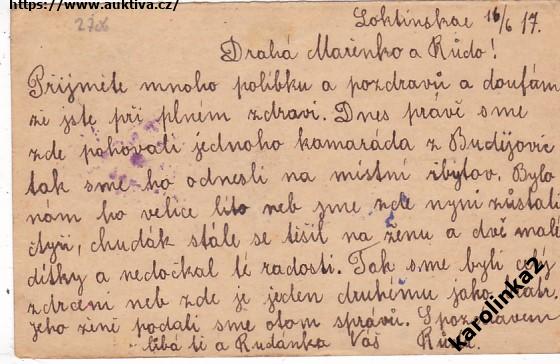 https://www.auktiva.cz/
2706
Loktinskae 16/6 17.
Drahá Mařenko a Růdo!
Přijměte mnoho polibku a pozdravů a doufám
že jste při plném zdraví. Dnes právě sme
zde pohovali jednoho kamaráda z Budějovic
tak sme ho odnesli na místní zbytov. Bylo
nám ho velice líto neb jsme zde nyní zůstali
čtyři, chudák stále se těšil na ženu a dvě malé
dítky a nedočkal té radosti. Tak sme byli celý
zdrceni neb zde je jeden druhému jako bratr,
jeho ženě podali sme otom správu. S pozdravem
líbá ti a Rudánka Váš Růda.
karolinka2